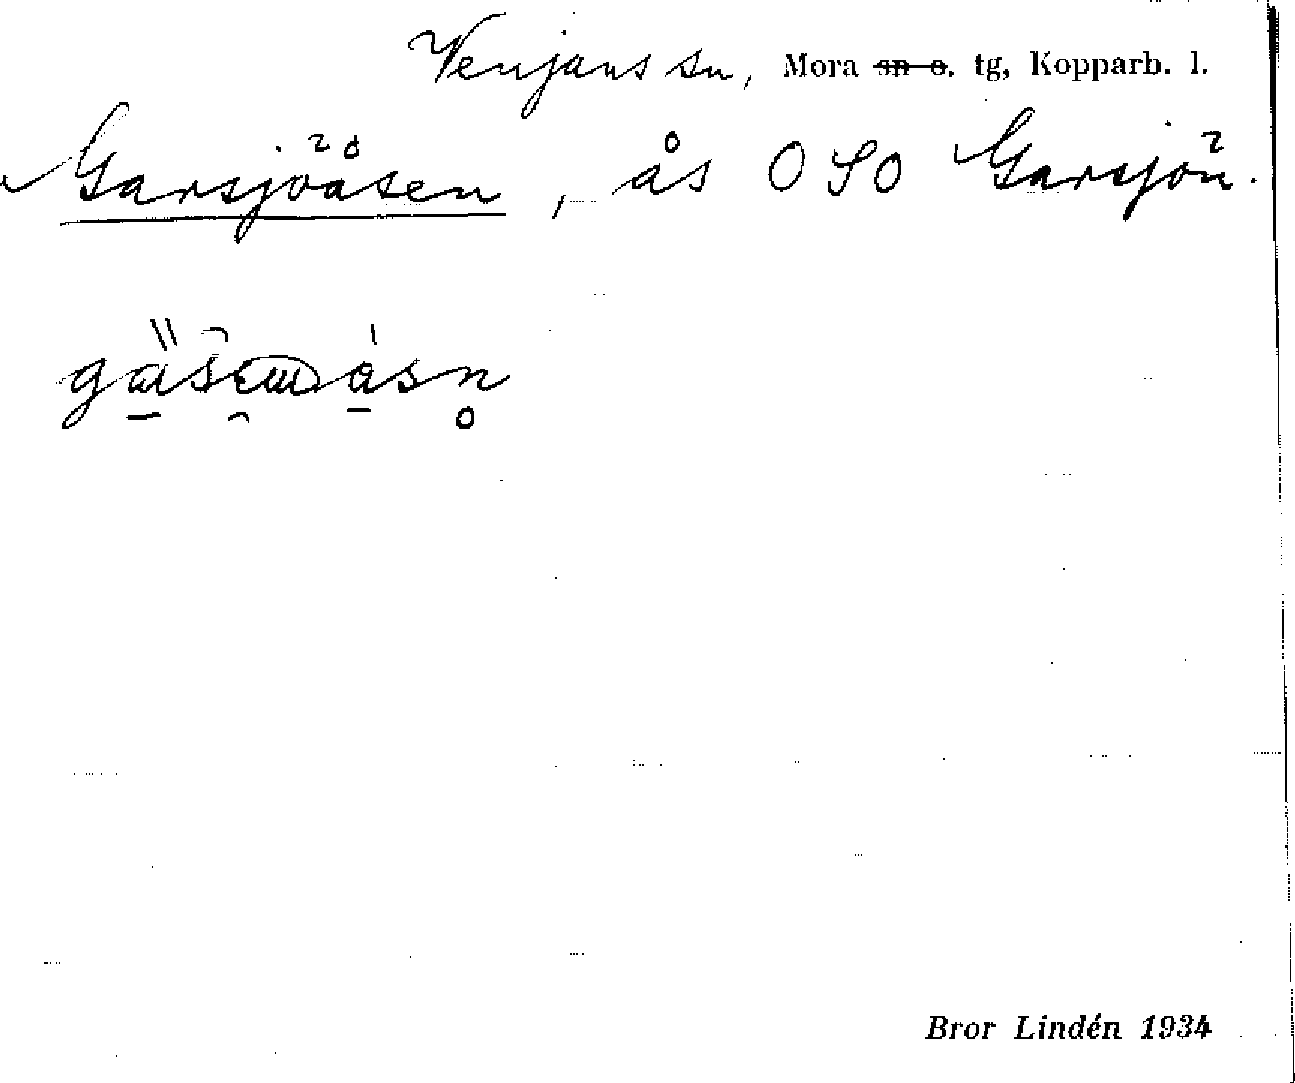 Venjans sn, Mora sn o. tg, Kopparb. l.
Garsjöåsen, ås OSO Garsjön.
Bror Lindén 1934